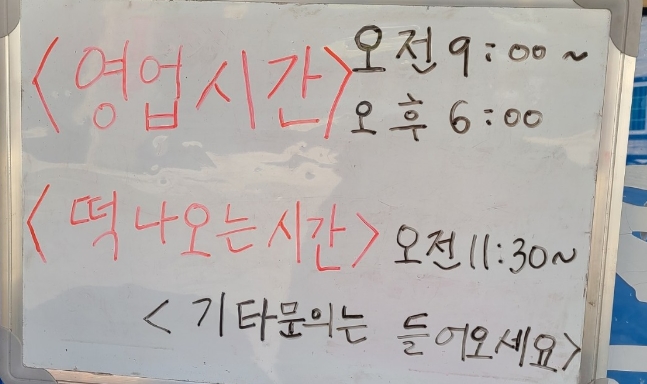 <영업시간> 오전 9:00~
오후 6:00
<떡 나오는 시간> 오전 11:30~
<기타문의는 들어오세요>